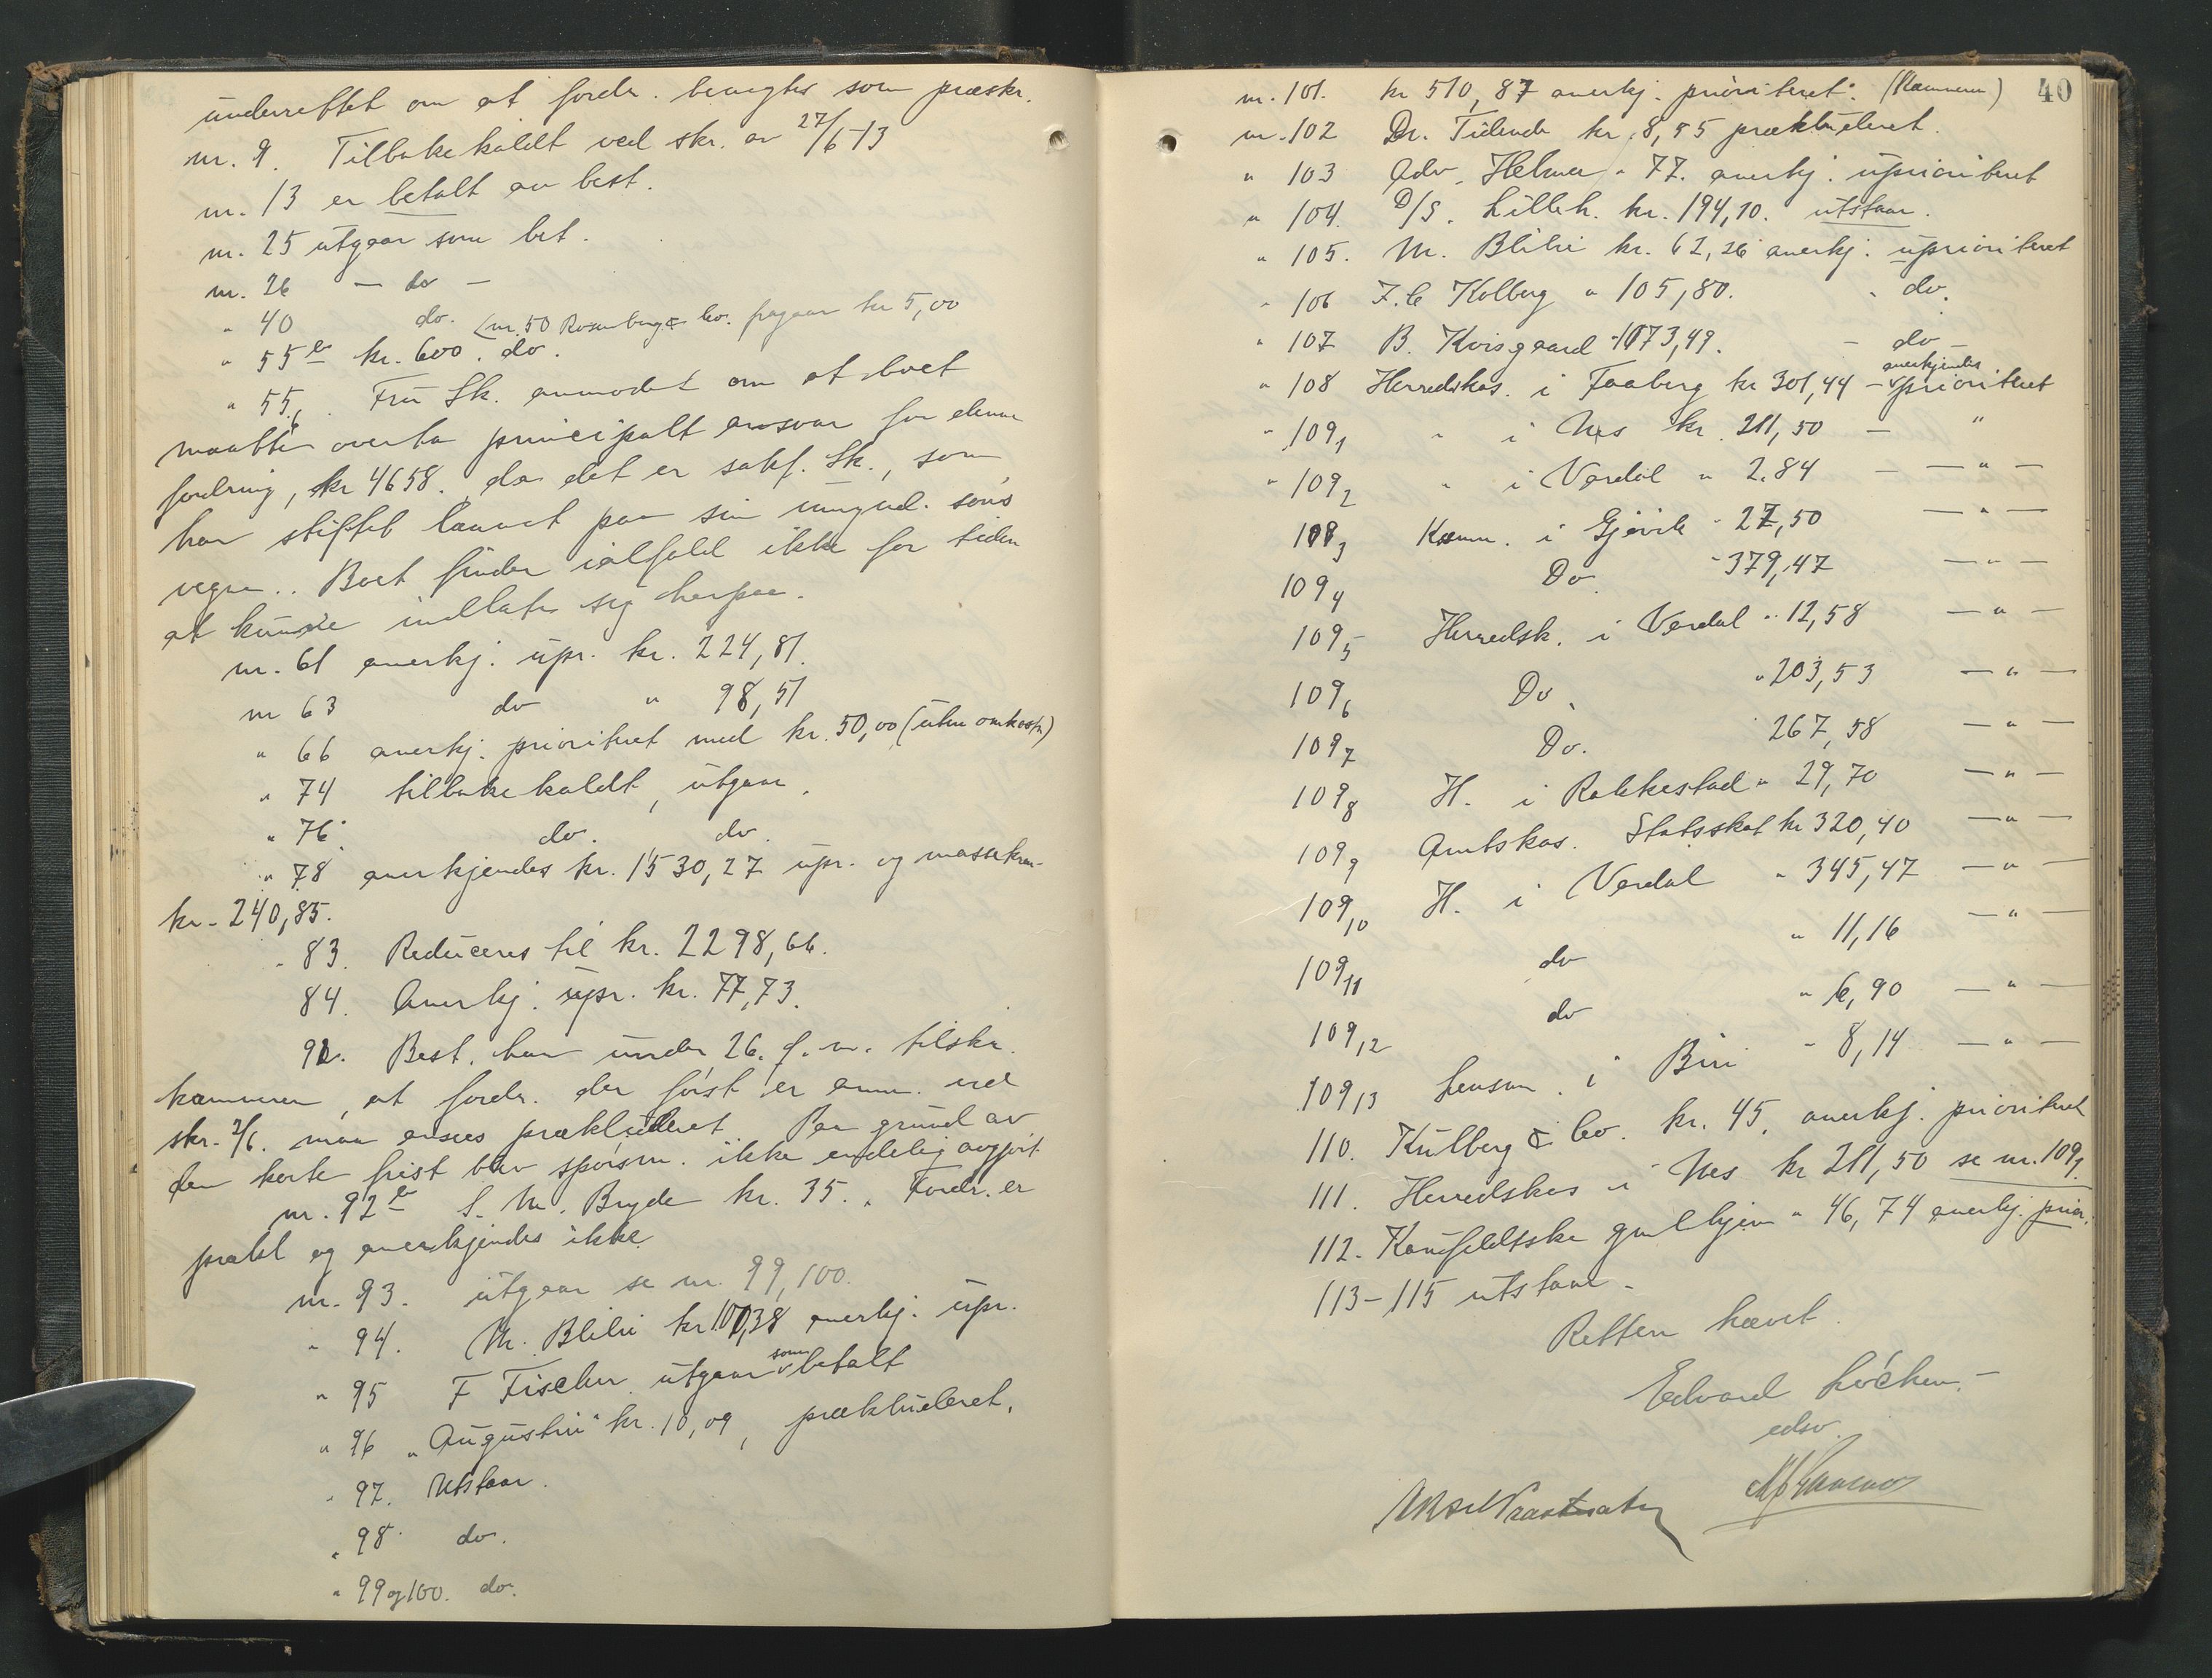 underrettet om at fordr. benegtes som præskr.
nr. 9. Tilbakekaldt ved skr. av 27/6-13
nr. 13 er betalt av best.
nr. 25 utgaar som bet.
nr. 26 — do —
" 40 do. (nr. 50 Rosenberg & Co. fragaar kr 5,00
" 55 b kr. 600. do.
" 55 c. Fru Sk. anmodet om at boet
maatte overta principalt ansvar for denne
fordring, kr 4658., da det er sakf. Sk., som
har stiftet laanet paa sin umynd. søns
vegne.. Boet finder ialfald ikke for tiden
at kunde indlate sig herpaa.
nr. 61 anerkj. upr. kr. 224,81.
nr 63 do " 98,51
" 66 anerkj. prioritert med kr. 50,00 (uten omkostn)
" 74 tilbakekaldt, utgaar.
" 76. do. do.
" 78 anerkjendes kr. 1530,27 upr. og massekrav
kr. 240,85.
" 83. Reduceres til kr. 2298,66.
84. Anerkj. upr. kr. 77,73.
92. Best. har under 26. f. m. tilskr.
kæmneren, at fordr. der først er anm. ved
skr. 2/6. maa ansees prækluderet Paa grund av
den korte frist blev spørsm. ikke endelig avgjort
nr. 92 b S. M. Bryde kr. 35. Fordr. er
prækl og anerkjendes ikke
nr. 93. utgaar se nr. 99, 100.
" 94. M. Blilie kr 100,38 anerkj. upr.
" 95 F Fischer utgaar som betalt
" 96 "Augustin" kr. 10,09, prækluderet.
" 97. Utstaar.
" 98 do.
" 99 og 100. do.
40
nr. 101. kr 510,87 anerkj. prioriteret. (Kæmneren)
nr. 102 Dr. Tidende kr. 8,55 prækluderet.
" 103 Adv. Helmer " 77. anerkj. uprioriteret
" 104. D/S. Lilleh. kr. 194,10. utstaar.
" 105. M. Blilie kr. 62,26 anerkj. uprioriteret
" 106 F. C Kolberg " 105,80. " do.
" 107 B. Kvisgaard " 1073,49. — do —
" 108 Herredskas. i Faaberg kr 301,44 — anerkjendes prioriteret
" 109 1 " i Nes kr. 211,50 — "
" 109 2 " i Verdal " 2.84 — — " —
109 3 Kæmn. i Gjøvik " 27,50 — " —
109 4 Do. " 379,47 — " —
109 5 Herredsk. i Verdal " 12,58 — " —
109 6 Do. " 203,53 — " —
109 7 Do. 267,58 — " —
109 8 H. i Rakkestad " 29,70 — " —
109 9 Amtskas. Statsskat kr 320,40 — " —
109 10 H. i Verdal " 345,47 — " —
109 11 do " 11,16 — " —
109 12 do " 6,90 — " —
109 13 Lensm. i Biri " 8,14 — " —
110. Kulberg & Co. kr. 45, anerkj. prioriteret
111. Herredskas i Nes kr 211,50 se nr. 109 1
112. gml hjem " 46,74 anerkj. prior.
113-115 utstaar -
Retten hævet.
Edvard Løchen.-
edsv.